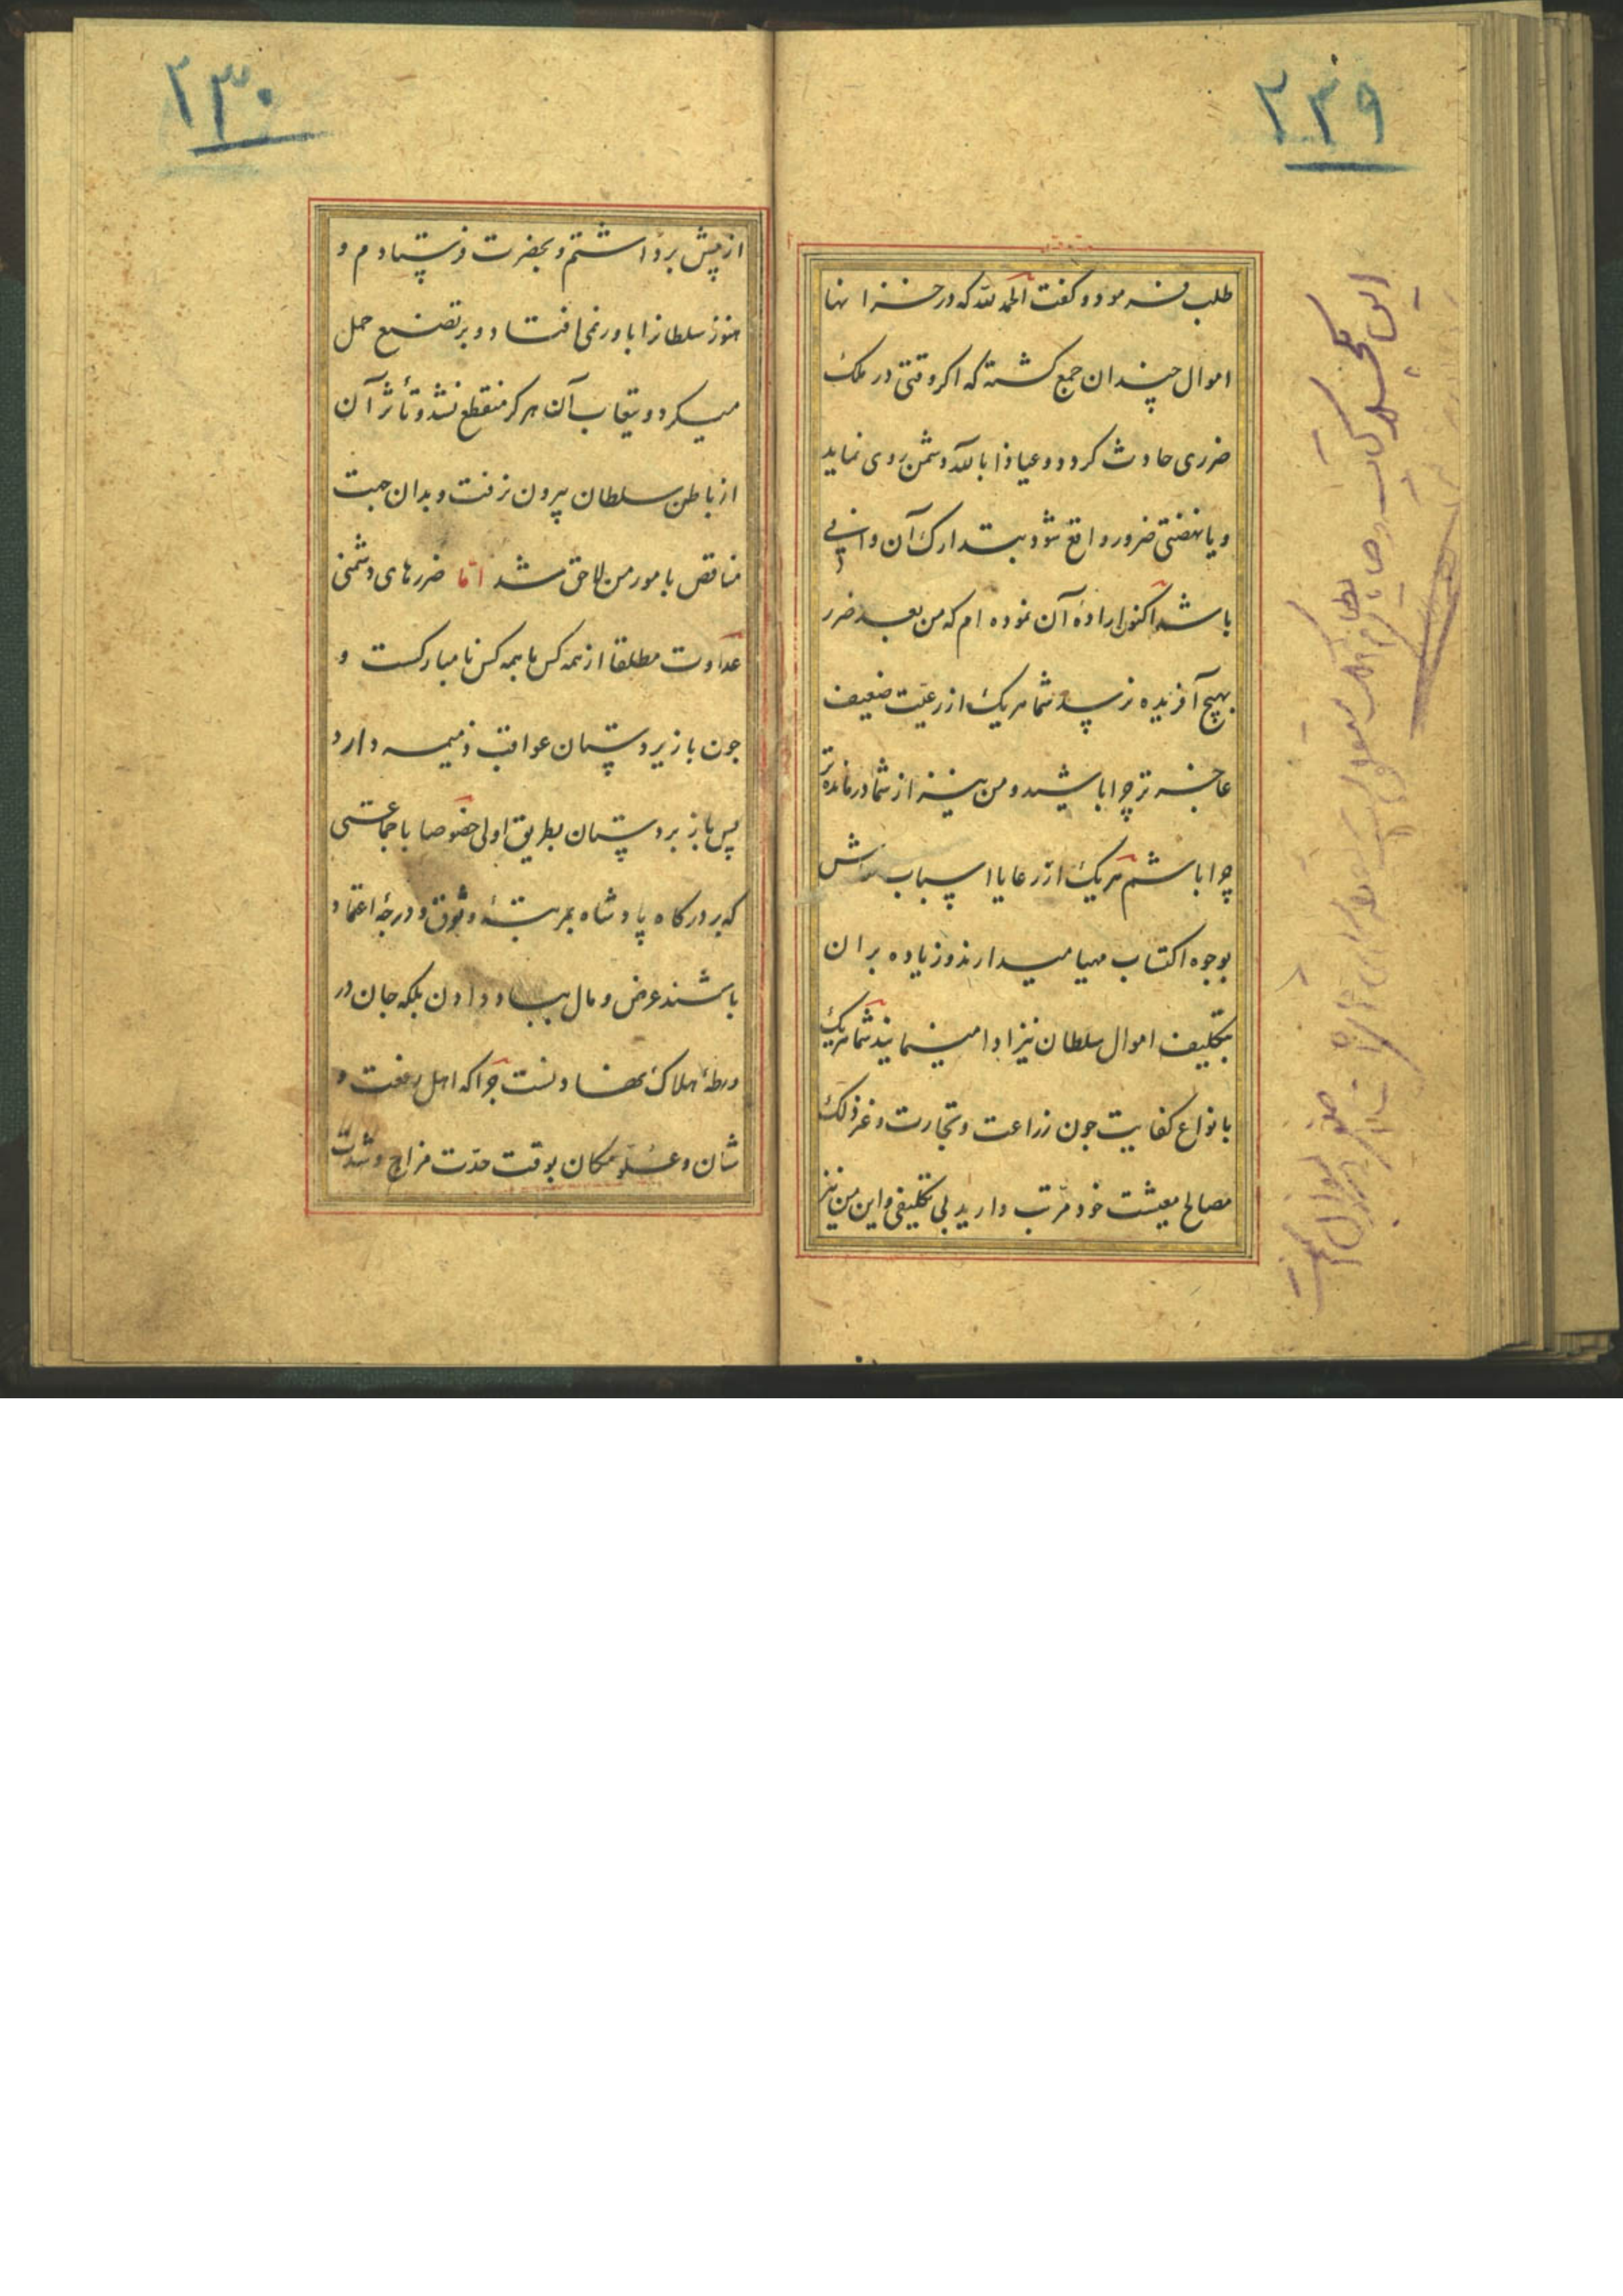 ۲۲۹
طلب فرمود و گفت الحمد لله که در خزانها
اموال چندان جمع گشته که اگر وقتی در ملک
ضرری حادث گردد و عیاذا بالله دشمن روی نماید
و یا نهضتی ضرور واقع شود بتدارک آن وافی
باشد اکنون اراده آن نموده ام که من بعد ضرر
بهیچ آفریده نرسد شما هریک از رعیت ضعیف
عاجزتر چرا باشید و من نیز از شما درمانده تر
چرا باشم هریک از رعایا اسباب معاش
بوجوه اکتساب مهیا میدارند و زیاده بران
بتکلیف اموال سلطان نیز ادا مینمایند شما هریک
بانواع کفایت جون زراعت و تجارت و غیر ذلک
مصالح معیشت خود مرتب دارید بی تکلیفی و این من نیز
۲۳۰
از پیش برداشتم و بحضرت فرستادم و
هنوز سلطانرا باور نمی افتاد و بر تصنیع حمل
میکرد و یتقاب آن هرگز منقطع نشد و تأثر آن
از باطن سلطان بیرون نرفت و بدان جهت
مناقص بامور من لاحق شد اما ضررهای دشمنی
عداوت مطلقا از همه کس با همه کس نامبارکست و
جون با زیردستان عواقب ذمیمه دارد
پس با زبردستان بطریق اولی خصوصا با جماعتی
که بر درگاه پادشاه بمرتبهٔ وثوق و درجهٔ اعتماد
باشند عرض و مال بباد دادن بلکه جان در
ورطهٔ هلاک نهادنست چرا که اهل رفعت و
شان و علو مکان بوقت حدّت مزاج و شدّت